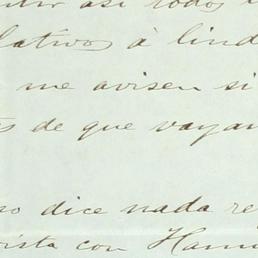 así todos
lativos á lind
me avisen si
de que vayan
dice nada re
vista con